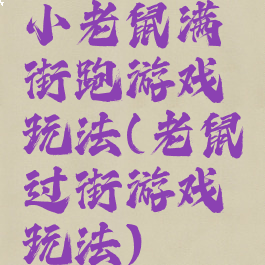 小老鼠满
街跑游戏
玩法(老鼠
过街游戏
玩法)